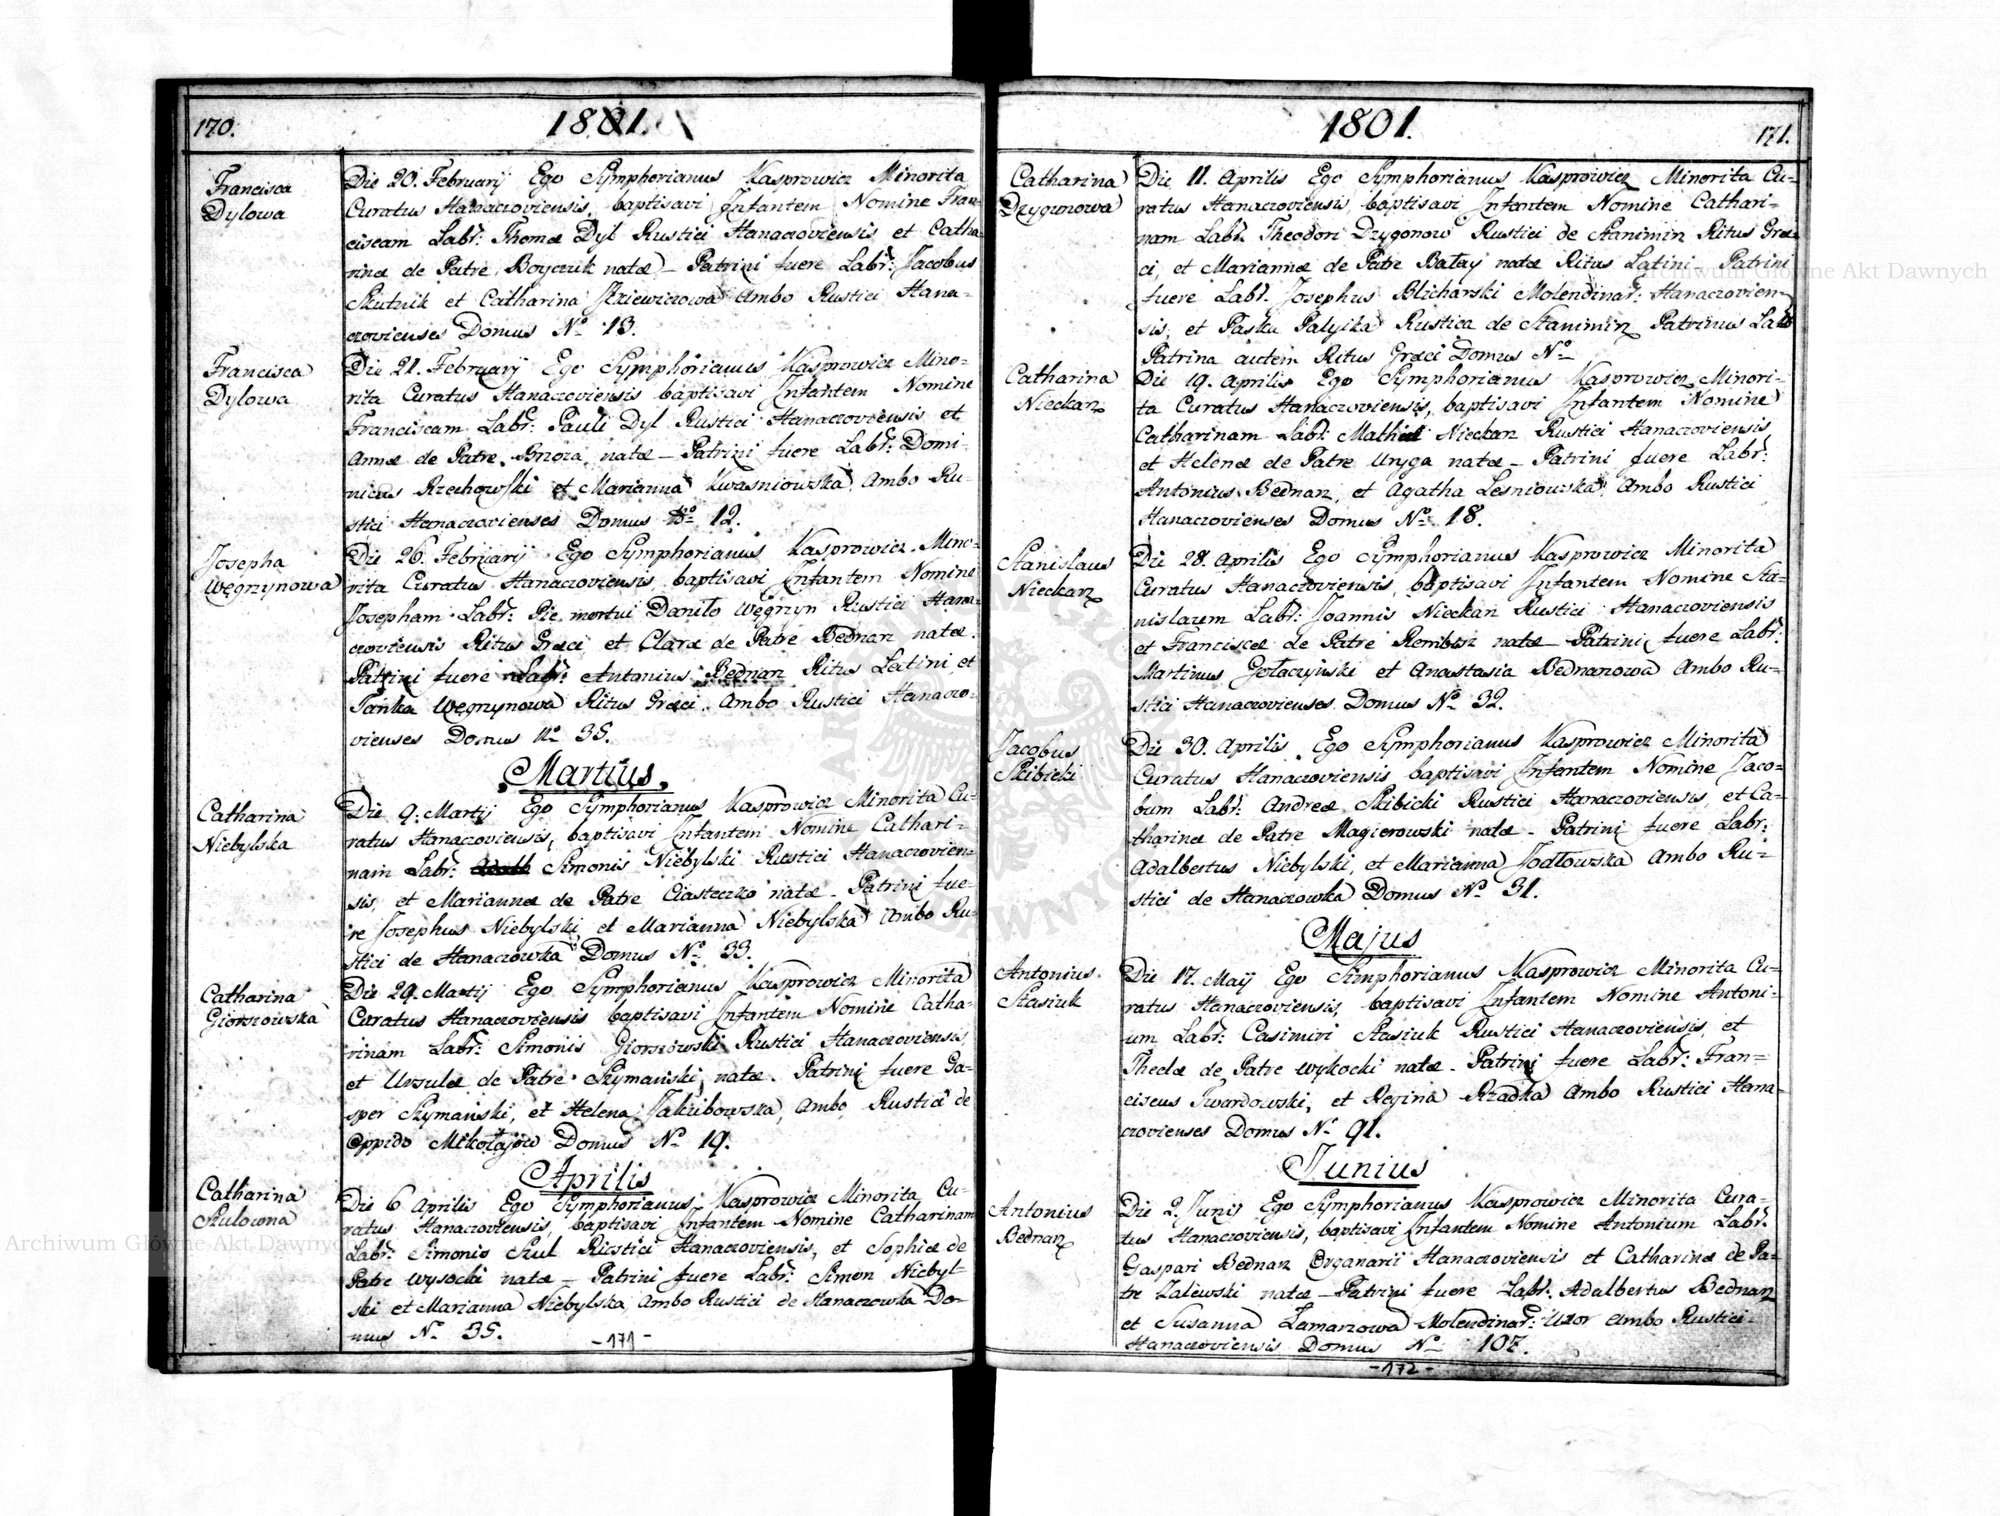 170.
1801.
Francisca
Dylowa
Die 20. Februarij Ego Symphorianus Kasprowicz Minorita
Curatus Hanaczoviensis, baptisavi Infantem Nomine Fran-
ciscam Labr: Thomæ Dyl Rustici Hanaczoviensis et Catha-
rinæ de Patre Boyczuk natæ – Patrini fuere Labr: Jacobus
Skutnik et Catharina Ambo Rustici Hana-
czovienses Domus No 13.
Francisca
Dylowa
Die 21. Februarij Ego Symphorianus Kasprowicz Mino-
rita Curatus Hanaczoviensis baptisavi Infantem Nomine
Franciscam Labr: Pauli Dyl Rustici Hanaczoviensis et
Annæ de Patre Brzoza natæ – Patrini fuere Labr: Domi-
nicus Rzechowski et Marianna Kwasniowska Ambo Ru-
stici Hanaczovienses Domus No 12.
Josepha
Węgrzynowa
Die 26. Februarij Ego Symphorianus Kasprowicz Mino-
rita Curatus Hanaczoviensis baptisavi Infantem Nomine
Josepham Labr: Pie mortui Daniło Węgrzyn Rustici Hana-
czoviensis Ritus Græci et Claræ de Patre Bednarz natæ.
Patrini fuere Labr: Antonius Bednarz Ritus Latini et
Tańka Węgrzynowa Ritus Græci. Ambo Rustici Hanaczo-
vienses Domus No 35.
Martius.
Catharina
Niebylska
Die 9. Martij Ego Symphorianus Kasprowicz Minorita Cu-
ratus Hanaczoviensis, baptisavi Infantem Nomine Cathari-
nam Labr: Simonis Niebylski Rustici Hanaczovien-
sis, et Mariannæ de Patre Ciasteczko natæ – Patrini fue-
re Josephus Niebylski et Marianna Niebylska Ambo Ru-
stici de Hanaczowka Domus No 33.
Catharina
Giorszowska
Die 29. Martij Ego Symphorianus Kasprowicz Minorita
Curatus Hanaczoviensis baptisavi Infantem Nomine Catha-
rinam Labr: Simonis Giorszowski Rustici Hanaczoviensis,
et Ursulæ de Patre Szymański natæ. Patrini fuere Ga-
sper Szymański, et Helena Jakubowska, Ambo Rustici de
Oppido Mikołajow Domus No 19.
Aprilis
Catharina
Szulowna
Die 6 Aprilis Ego Symphorianus Kasprowicz Minorita Cu-
ratus Hanaczoviensis, baptisavi Infantem Nomine Catharinam
Labr: Simonis Szul Rustici Hanaczoviensis, et Sophiæ de
Patre Wysocki natæ – Patrini fuere Labr: Simon Niebyl-
ski et Marianna Niebylska Ambo Rustici de Hanaczowka Do-
mus No 35.
-171-
1801.
171.
Catharina
Dzygonowa
Die 11. Aprilis Ego Symphorianus Kasprowicz Minorita Cu-
ratus Hanaczoviensis, baptisavi Infantem Nomine Cathari-
nam Labr. Theodori Dzygonow Rustici de Stanimirz Ritus Græ-
ci, et Mariannæ de Patre Batay natæ Ritus Latini – Patrini
fuere Labr. Josephus Blicharski Molendinar: Hanaczovien-
sis, et Paska Palyika Rustica de Stanimirz Patrinus Lat
Patrina autem Ritus Græci Domus No –
Catharina
Nieckarz
Die 19. Aprilis Ego Symphorianus Kasprowicz Minori-
ta Curatus Hanaczoviensis, baptisavi Infantem Nomine
Catharinam Labr: Mathiæ Nieckarz Rustici Hanaczoviensis,
et Helenæ de Patre Uryga natæ – Patrini fuere Labr:
Antonius Bednarz, et Agatha Lesniowska Ambo Rustici
Hanaczovienses Domus No 18.
Stanislaus
Nieckarz
Die 28. Aprilis Ego Symphorianus Kasprowicz Minorita
Curatus Hanaczoviensis, baptisavi Infantem Nomine Sta-
nislaum Labr: Joannis Nieckarz Rustici Hanaczoviensis
et Franciscæ de Patre Rembisz natæ – Patrini fuere Labr:
Martinus Gołaczyński et Anastasia Bednarzowa Ambo Ru-
stici Hanaczovienses Domus No 32.
Jacobus
Skibicki
Die 30. Aprilis Ego Symphorianus Kasprowicz Minorita
Curatus Hanaczoviensis baptisavi Infantem Nomine Jaco-
bum Labr. Andreæ Skibicki Rustici Hanaczoviensis, et Ca-
tharinæ de Patre Magierowski natæ – Patrini fuere Labr:
Adalbertus Niebylski, et Marianna Jodłowska Ambo Ru-
stici de Hanaczowka Domus No 31.
Majus
Antonius
Stasiuk
Die 17. Maij Ego Simphorianus Kasprowicz Minorita Cu-
ratus Hanaczoviensis, baptisavi Infantem Nomine Antoni-
um Labr: Casimiri Stasiuk Rustici Hanaczoviensis, et
Theclæ de Patre Wykocki natæ – Patrini fuere Labr: Fran-
ciscus Twardowski, et Regina Rzadka Ambo Rustici Hana-
czovienses Domus No 91.
Junius
Antonius
Bednarz
Die 2. Junij Ego Symphorianus Kasprowicz Minorita Cura-
tus Hanaczoviensis, baptisavi Infantem Nomine Antonium Labr.
Gaspari Bednarz Organarii Hanaczoviensis et Catharinæ de Pa-
tre Zalewski natæ – Patrini fuere Labr. Adalbertus Bednarz
et Susanna Lemarzowa Molendinar: Uxor Ambo Rustici
Hanaczoviensis Domus No 107.
-172-
Archiwum Główne Akt Dawnych
Archiwum Główne Akt Dawnych